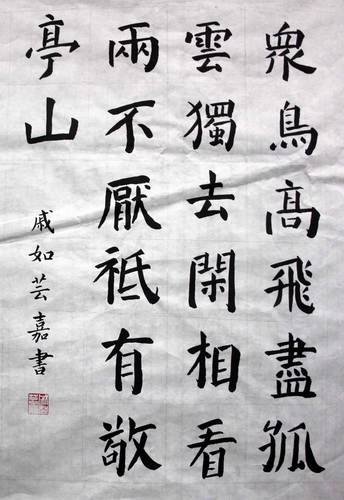 衆鳥高飛盡孤
雲獨去閑相看
兩不厭祗有敬
亭山
戚如芸嘉書